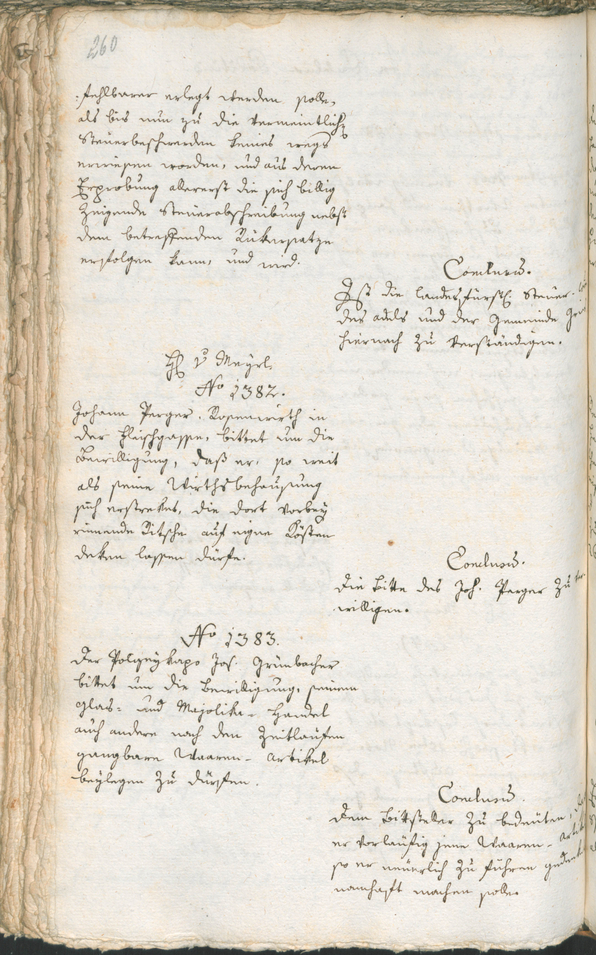 260
fehlbarer erlegt werden solle,
als bis nun zu die vermeintlich
Steuerbeschwerden keines wegs
erwiesen worden, und aus deren
Erprobung allererst die sich billig
zeigende Steuerabschreibung nebst
dem betreffenden Rükersatze
erfolgen kann, und wird.
Conclusum.
Ist die landesfürstl. Steuer-
des adels und der Gemeinde
hiernach zu verständigen.
H. v. Mayrl.
No 1382.
Johann Perger, Rosenwirth in
der Fleischgasse, bittet um die
Bewilligung, daß er, so weit
als seine Wirthsbehausung
sich erstreket, die dort vorbey
rinnende Ritsche auf eigne Kösten
deken lassen dürfe.
Conclusum.
Die Bitte des Joh. Perger zu be-
willigen.
No 1383.
Der Polizeykapo Jos. Grünbacher
bittet um die Bewilligung, seinem
Glas- und Majolika-Handel
auch andere nach den Zeitläufen
gangbare Waaren-Artikel
beylegen zu dürfen.
Conclusum.
Dem Bittsteller zu bedeuten,
er vorläufig jene Waaren-Artikel
so er neuerlich zu führen gedenkt
namhaft machen solle.